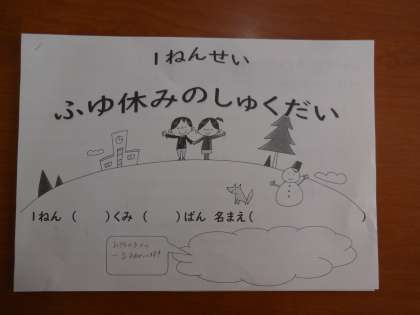 1ねんせい
ふゆ休みのしゅくだい
1ねん ( )くみ ( )ばん 名まえ( )